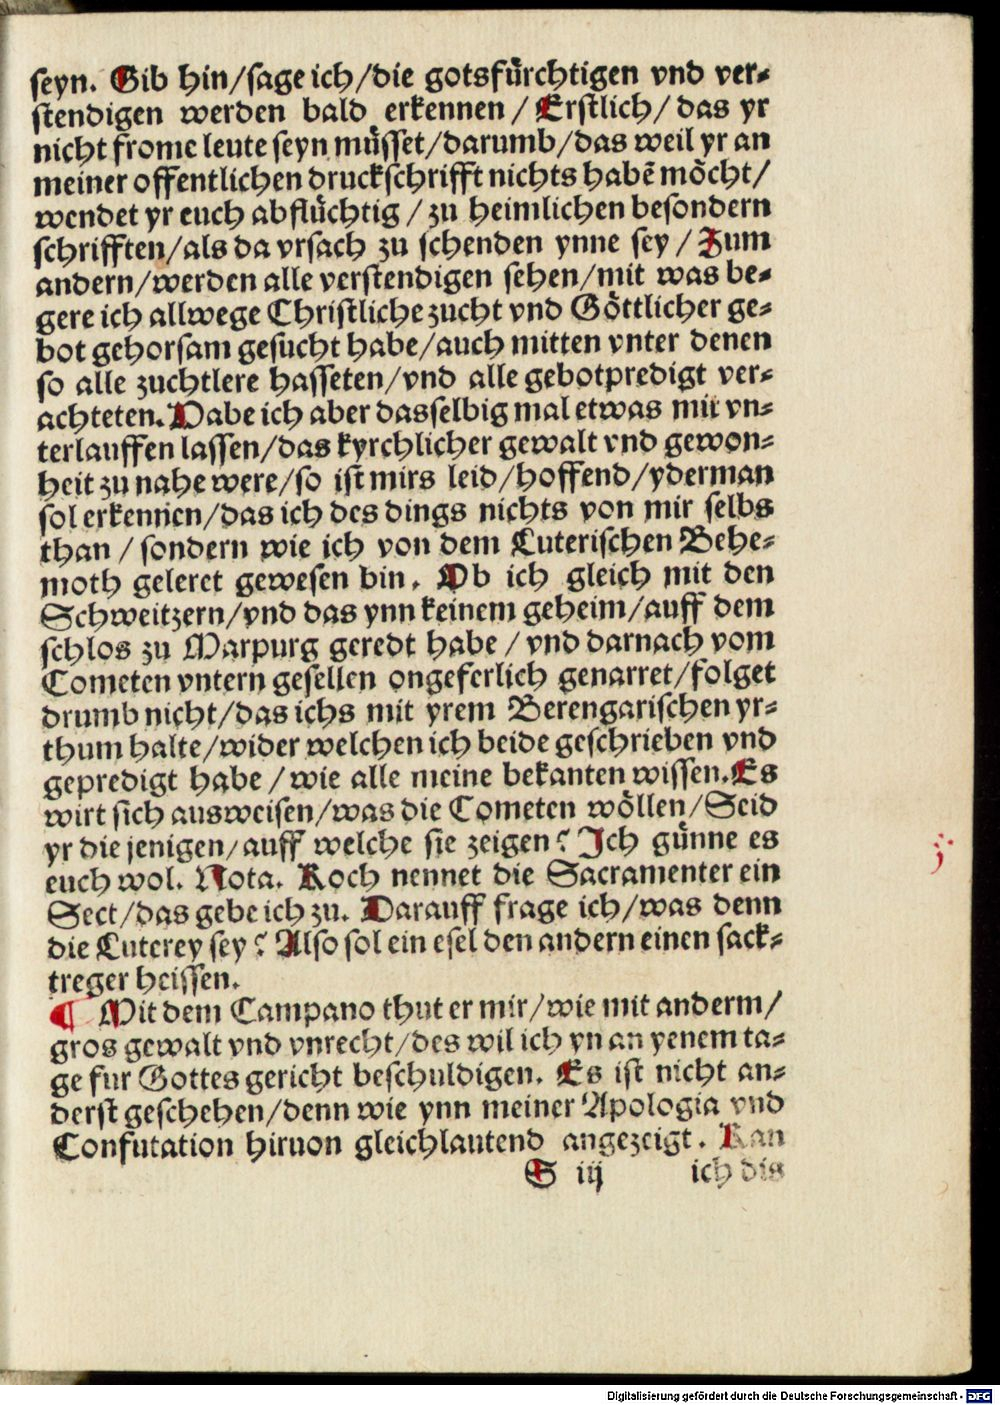 seyn. Gib hin/sage ich/die gotsfürchtigen vnd ver⸗
stendigen werden bald erkennen / Erstlich/ das yr
nicht frome leute seyn müsset/darumb/das weil yr an
meiner offentlichen druckschrifft nichts habē möcht/
wendet yr euch abflüchtig / zu heimlichen besondern
schrifften/als da vrsach zu schenden ynne sey / Zum
andern/werden alle verstendigen sehen/mit was be⸗
gere ich allwege Christliche zucht vnd Göttlicher ge⸗
bot gehorsam gesucht habe/auch mitten vnter denen
so alle zuchtlere hasseten/vnd alle gebotpredigt ver⸗
achteten. Habe ich aber dasselbig mal etwas mit vn⸗
terlauffen lassen/das kyrchlicher gewalt vnd gewon⸗
heit zu nahe were/so ist mirs leid/hoffend/yderman
sol erkennen/das ich des dings nichts von mir selbs
than / sondern wie ich von dem Luterischen Behe⸗
moth geleret gewesen bin. Ob ich gleich mit den
Schweitzern/vnd das ynn keinem geheim/auff dem
schlos zu Marpurg geredt habe / vnd darnach vom
Cometen vntern gesellen ongeferlich genarret/folget
drumb nicht/das ichs mit yrem Berengarischen yr⸗
thum halte/wider welchen ich beide geschrieben vnd
gepredigt habe / wie alle meine bekanten wissen. Es
wirt sich ausweisen/was die Cometen wöllen/Seid
yr die jenigen/auff welche sie zeigen? Ich günne es
euch wol. Nota. Koch nennet die Sacramenter ein
Sect/das gebe ich zu. Darauff frage ich/was denn
die Luterey sey? Also sol ein esel den andern einen sack⸗
treger heissen.
¶ Mit dem Campano thut er mir/wie mit anderm/
gros gewalt vnd vnrecht/des wil ich yn an yenem ta⸗
ge fur Gottes gericht beschuldigen. Es ist nicht an⸗
derst geschehen/denn wie ynn meiner Apologia vnd
Confutation hiruon gleichlautend angezeigt. Kan
S iij ich dis
Digitalisierung gefördert durch die Deutsche Forschungsgemeinschaft - DFG